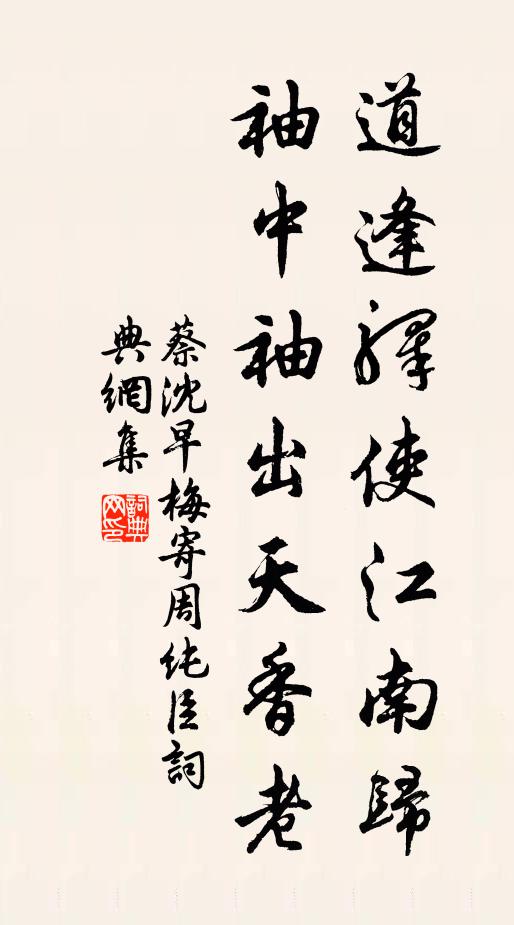 道逢驛使江南歸
袖中袖出天香老
蔡沈早梅寄周純臣詞
典網集
詞典網印